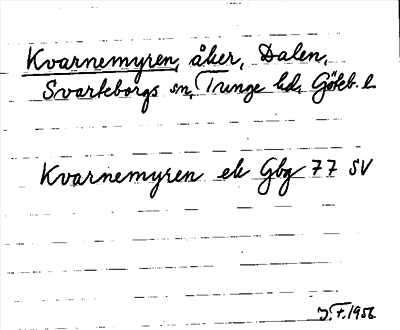 Kvarnemyren, åker, Dalen,
Svarteborgs sn, Tunge hd, Göteb. l.
Kvarnemyren ek Gbg 77 SV
J.F. 1956